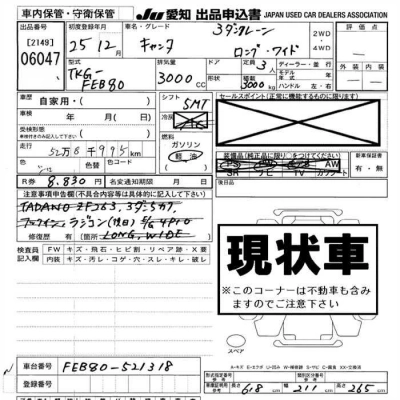 車内保管・守衛保管
JU 愛知 出品申込書 JAPAN USED CAR DEALERS ASSOCIATION
出品番号
[2149]
06047
初度登録年月
25年12月
車名・グレード
キャンター
3ダンクレーン
ロング・ワイド
2WD
4WD
評点
型式
TKG-
FEB80
排気量
3000cc
定員
3人
積載
3000kg
ディーラー・並行
モデル年式
年
ハンドル 左・右
外装
内装
車歴
自家用・
車検
年 月 日
受検形態
走行
52万8千995km
色
色替
色コード
R券
8,830円
名変通知期限 月 日
シフト
5MT
冷房
燃料
ガソリン
軽油
セールスポイント(正常に機能するものに限ります)
装備品(純正品に限り○をつけてください)
AW
SR
TV
新車保証書
有・無
後日部品
注意事項報告欄(不具合内容等は具体的に記入して下さい)
TADANO ZF263, 3ダン
フックイン ラジコン(後日) S/G 4PTO
LONG, WIDE
修復歴 有
検査員記入欄
FW
キズ・飛石・ヒビ割・リペア跡・X要
内装
キズ・汚レ・コゲ・穴・スレ・キレ・破レ
現状車
※このコーナーは不動車も含みますのでご注意下さい
スペア
車台番号
FEB80-521318
登録番号
長さ 618cm
幅 211cm
高さ 265cm